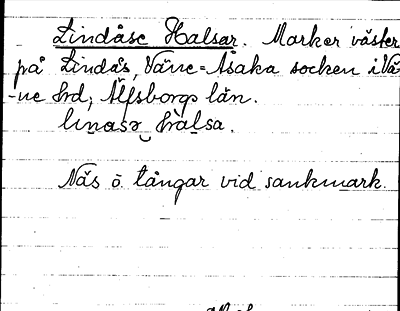 Lindåse Halsar. Marker väster
på Lindås, Väne-Åsaka socken i Vä-
-ne hrd, Älfsborgs län.
linasə halsa.
Näs o tångar vid sankmark.